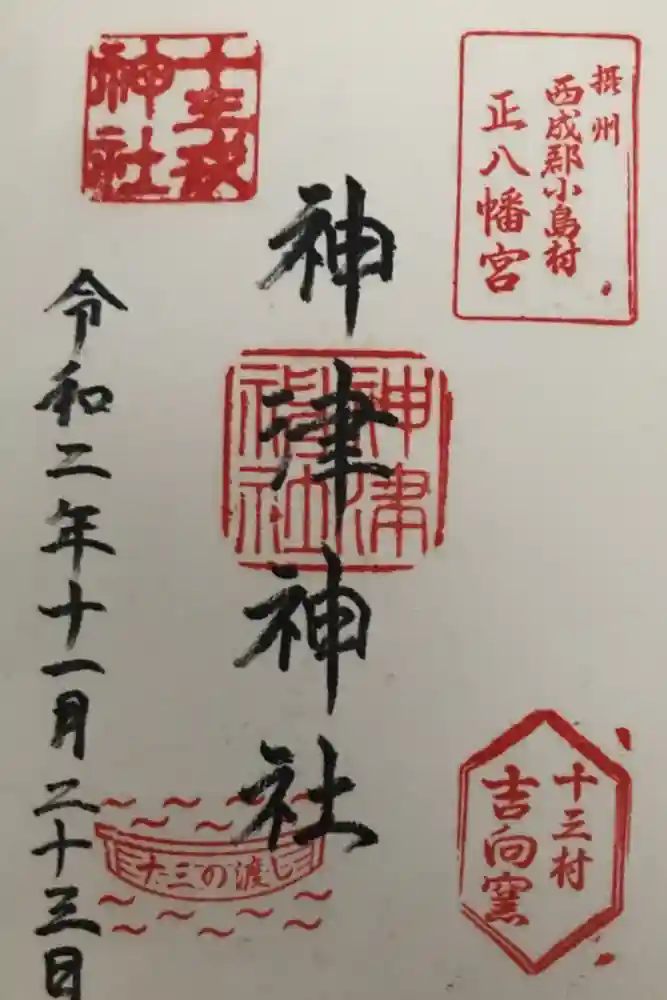 摂州
西成郡小島村
正八幡宮
神津神社
神津
神社
十三戎
神社
令和二年十一月二十三日
十三村
吉向窯
十三の渡し